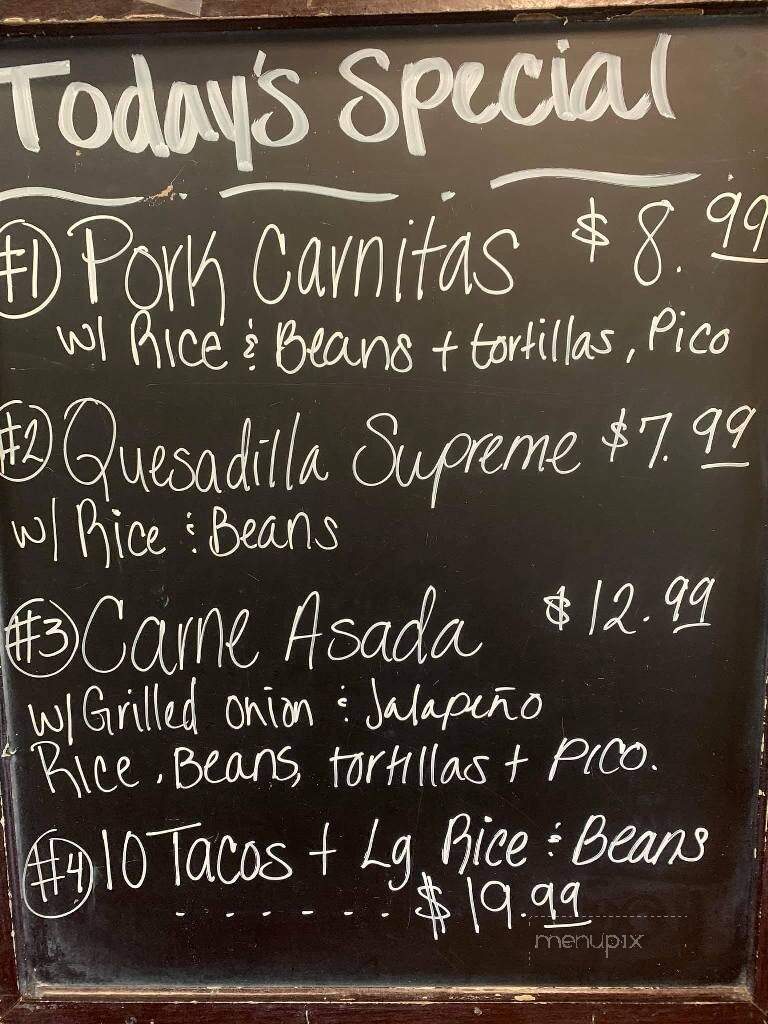 Today's Special
#1 Pork Carnitas $8.99
w/ Rice & Beans + tortillas, Pico
#2 Quesadilla Supreme $7.99
w/ Rice & Beans
#3 Carne Asada $12.99
w/ Grilled onion & Jalapeño
Rice, Beans, tortillas + PICO.
#4 10 Tacos + Lg Rice & Beans
. . . . . . . $19.99
menupix